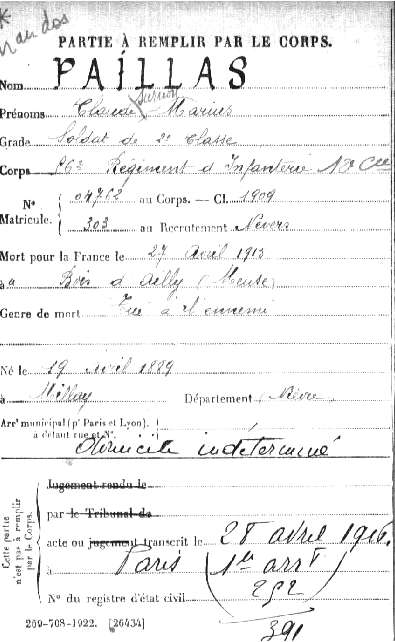 au dos
PARTIE À REMPLIR PAR LE CORPS.
Nom PAILLAS
Prénoms Claude Marius
Grade Soldat de 2e Classe
Corps Régiment d'Infanterie
No 04762 au Corps. — Cl. 1909
Matricule. 303 au Recrutement Nevers
Mort pour la France le 27 Avril 1915
à Bois d'Ailly (Meuse)
Genre de mort Tué à l'ennemi
Né le 19 Avril 1889
à Millay Département Nièvre
Arrt municipal (pr Paris et Lyon).
à défaut rue et No.
domicile indéterminé
Cette partie n'est pas à remplir par le Corps.
Jugement rendu le
par le Tribunal de
acte ou jugement transcrit le 28 avril 1916.
à Paris (1er arrt
No du registre d'état civil 252
391
269-708-1922. [26434]